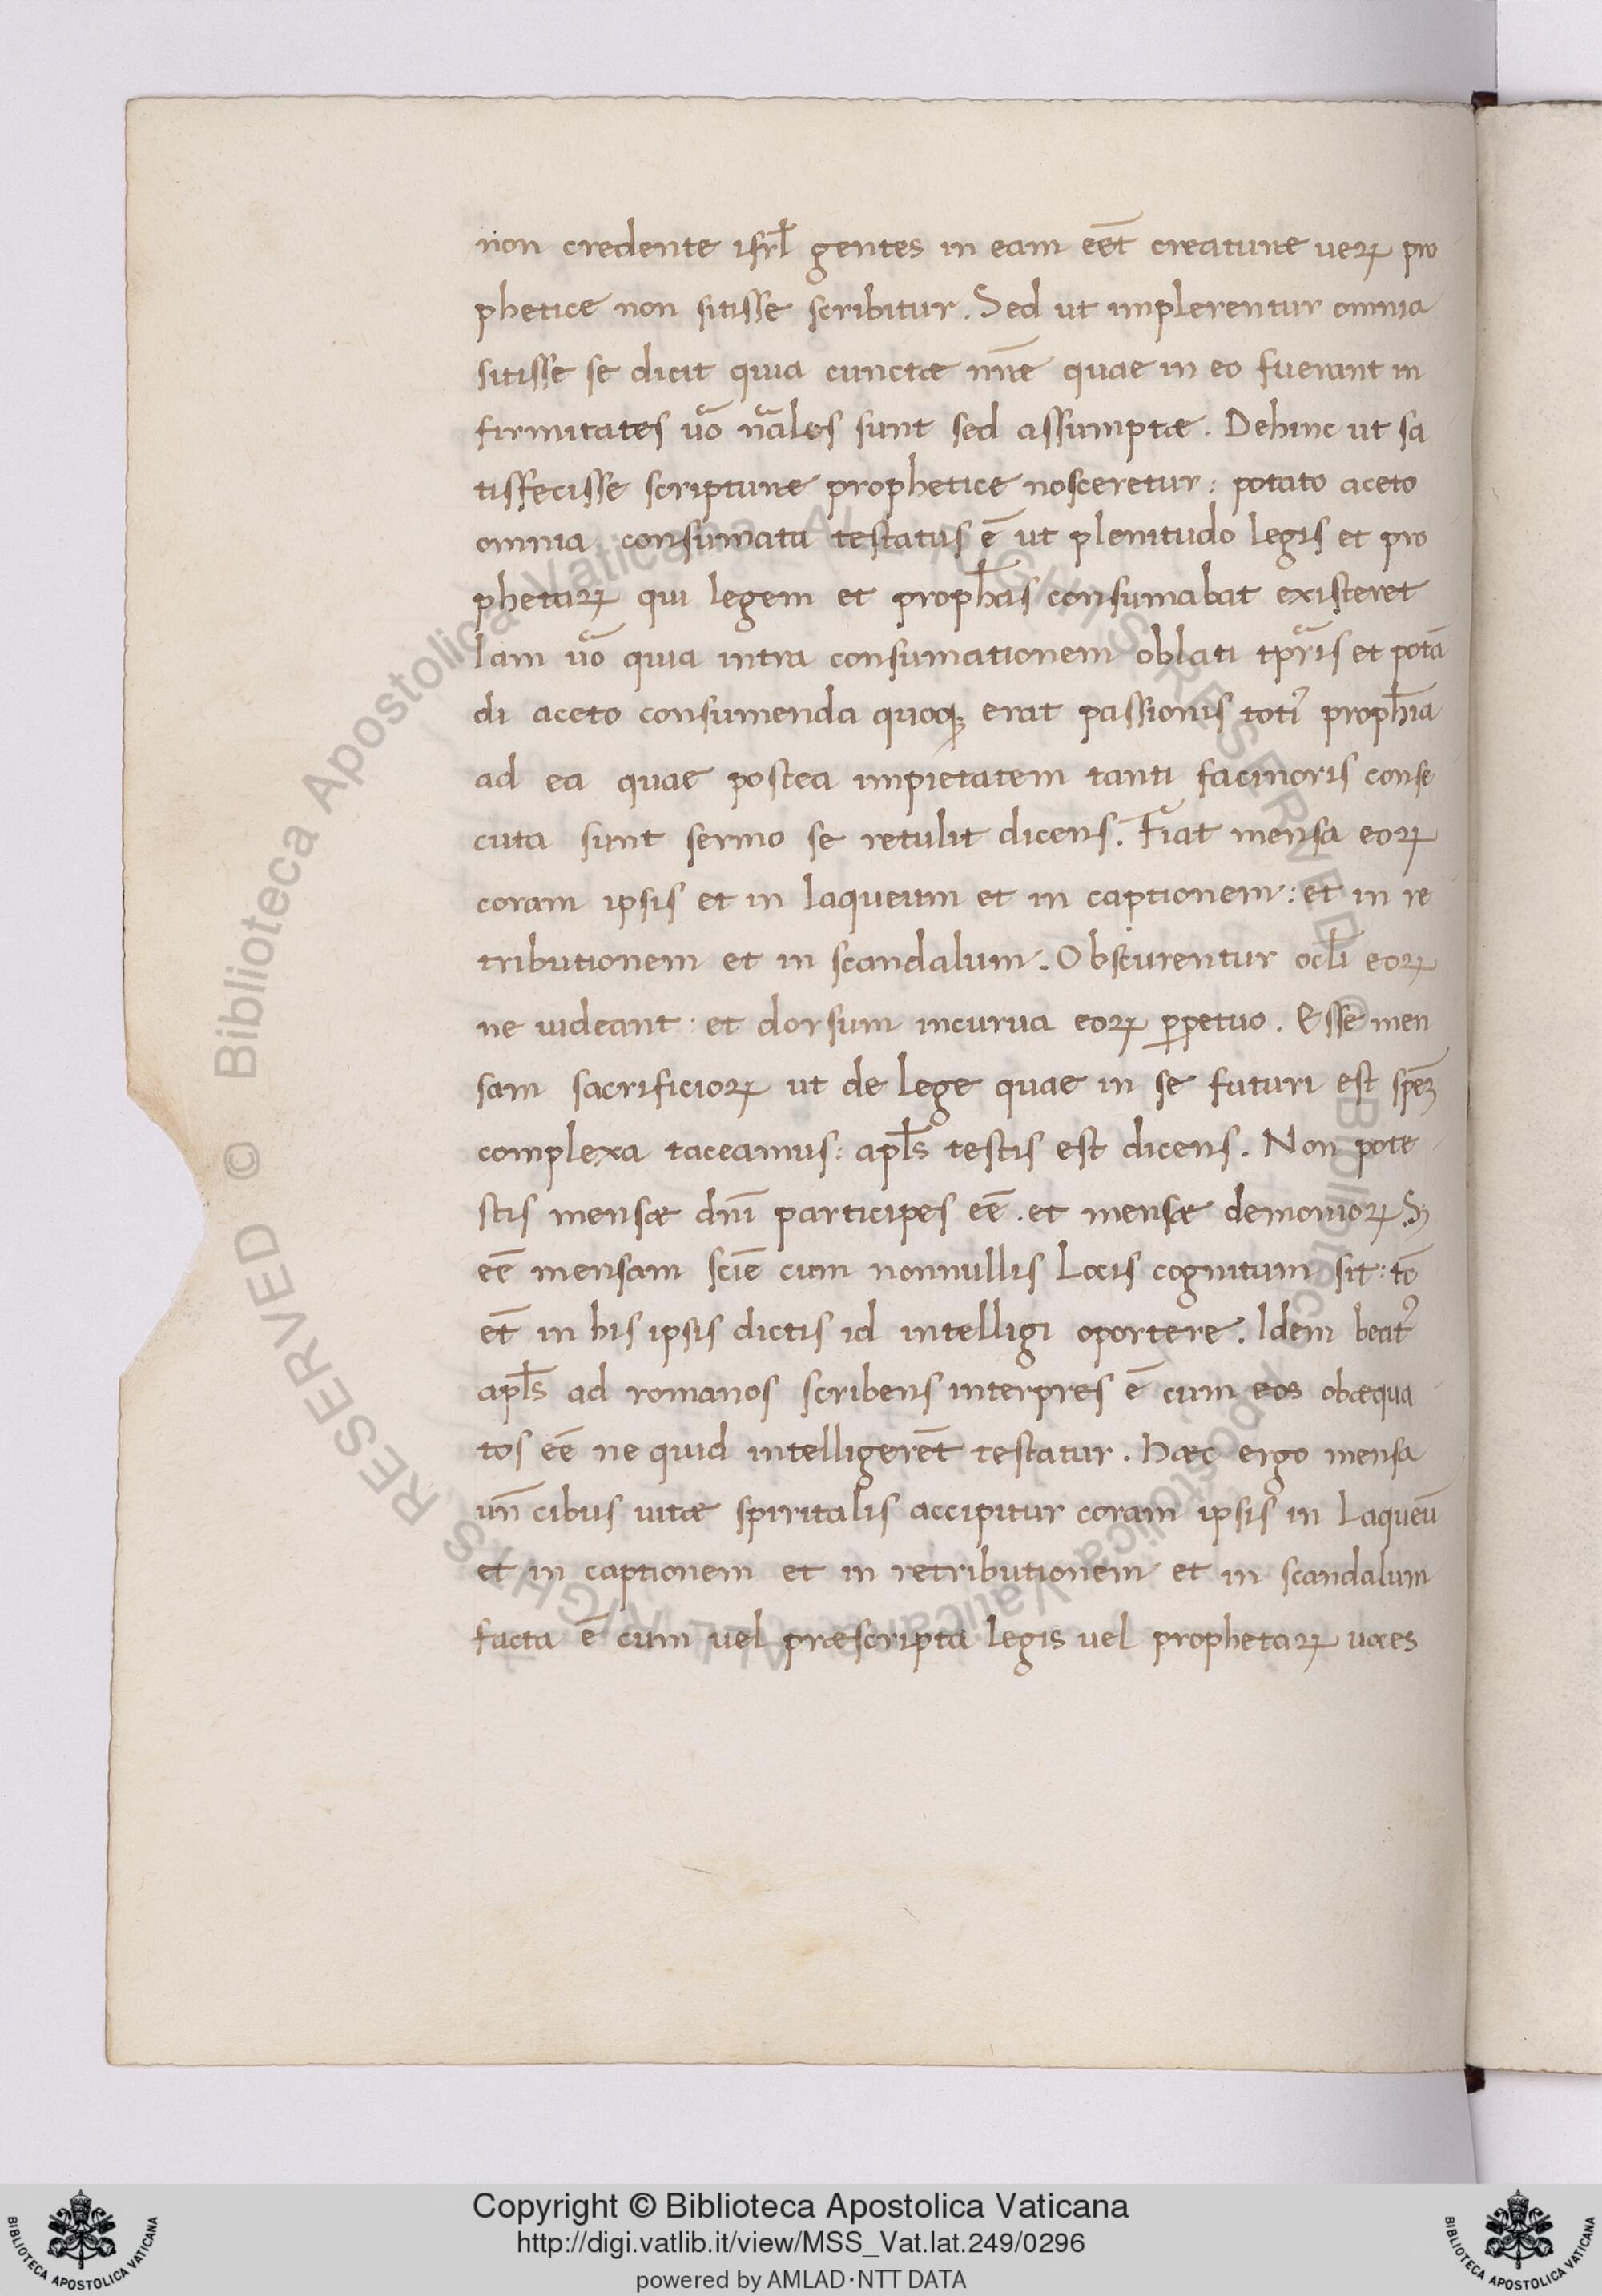 non credente isrl̄ gentes in eam eēt creaturæ ueꝝ pro
phetice non sitisse scribitur. Sed ut implerentur omnia
sitisse se dicit quia cunctæ nr̄ae quae in eo fuerant in
firmitates uō nāles sunt sed assumptæ. Dehinc ut sa
tisfecisse scripturae prophetice nosceretur: potato aceto
omnia consumata testatus ē ut plenitudo legis et pro
phetaꝝ qui legem et proph̄as consumabat existeret
Iam uō quia intra consumationem oblati tpr̄is et potā
di aceto consumenda quoqꝫ erat passionis totiꝰ proph̄ia
ad ea quae postea impietatem tanti facinoris conse
cuta sunt sermo se retulit dicens. Fiat mensa eoꝝ
coram ipsis et in laqueum et in captionem: et in re
tributionem et in scandalum. Obscurentur ocl̄i eoꝝ
ne uideant: et dorsum incurua eoꝝ ꝑpetuo. Esse men
sam sacrificioꝝ ut de lege quae in se futuri est spem̄
complexa taceamus: apl̄s testis est dicens. Non pote
stis mensæ dn̄i participes eē. et mensæ demonioꝝ. Sꝫ
eē mensam sciē cum nonnullis locis cognitum sit: tō
ēt in his ipsis dictis id intelligi oportere. Idem beatꝰ
apl̄s ad romanos scribens interpres ē cum eos obæqua
tos eē ne quid intelligerēt testatur. Hæc ergo mensa
un̄ cibus uitæ spiritalis accipitur coram ipsis in laqueū
et in captionem et in retributionem et in scandalum
facta ē cum uel præscripta legis uel prophetaꝝ uoces
© Biblioteca Apostolica Vaticana ALL RIGHTS RESERVED
© Biblioteca Apostolica Vaticana ALL RIGHTS RESERVED
Copyright © Biblioteca Apostolica Vaticana
http://digi.vatlib.it/view/MSS_Vat.lat.249/0296
powered by AMLAD·NTT DATA
BIBLIOTECA APOSTOLICA VATICANA
BIBLIOTECA APOSTOLICA VATICANA